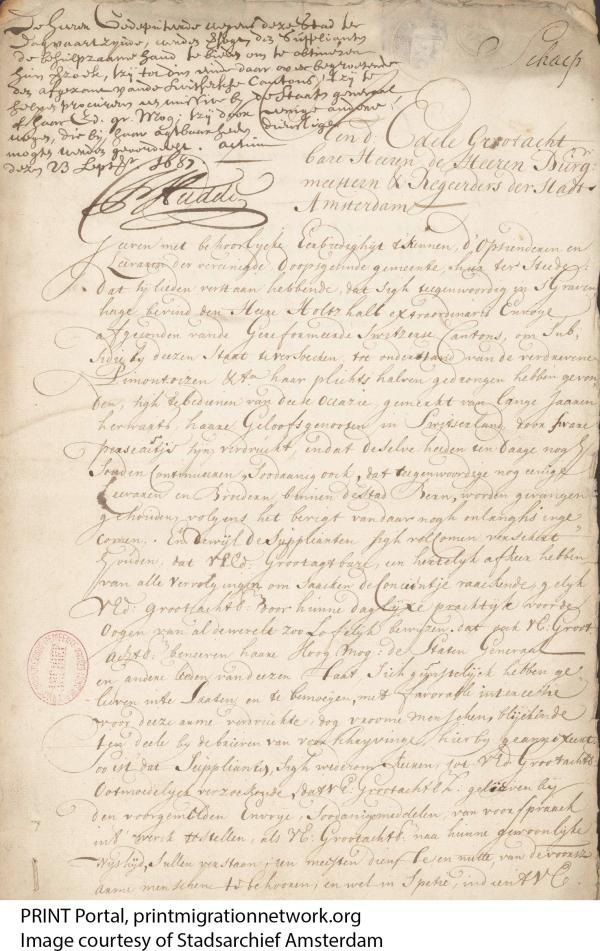 De Heeren Gedeputeerde wegens deze Stad ter
Dagvaart zijnde, worden ten behoeve des Suppliants
de behulpzaame hand te bieden om te obtineren
hun verzoek, 't zij tot den eenen daar over begroetende
den afgezonden van de Zwitserse Cantons, 't zij te
helpen procureren een missive bij de Staaten generaal
of haar Ed. gr. Mog; 't zij door eenige andere
weegen, die bij haar achtbaarheden dienstigst
mogte werden geoordeelt. actum
dezen 23 Septr 1687
J Hudde
Schaep
Aen d' Edele Groot acht
bare Heeren, de Heeren Burge
meesteren & Regeerders der Stadt
Amsterdam
Geeven met behoorlycke Eerbiedigheijt te kennen, d' Opsienderen en
Leeraren der vereenigde Doopsgesinde gemeente, hier ter Steede:
Dat sij lieden verstaan hebbende, dat sigh teegenwoordig in 's Graven
hage bevind den Heere Holtzhalb extraordinaris Envoyé
afgesonden van de Gereformeerde Switzerse Cantons, om Sub,
sidie by deezen Staat te versoecken, tot onderstand van de verdreevene
Pimontoizen &ca haar plichts halven gedrongen hebben gevon
den, sigh te bedienen van deese Occazie, gemerkt van lange Jaaren
herwaarts, haare Geloofsgenooten in Switserland, door sware
persecutijs syn verdruckt, en dat deselve heeden ten daage nog
souden Continueeren, Soodaanig oock, dat teegenwoordig nog eenige
Leeraren en Broedren binnen de Stad Bern, worden gevangen
gehouden, volgens het berigt van daar nogh onlanghs inge
comen. En dewijl de Supplianten sigh volkomen verseekert
houden, dat UEd: Grootagtbare, een hertelyk afkeer hebben
van alle Vervolgingen om Saacken de Concientje raackende, gelyk
UEd: Grootachtb: door hunne dagelijxe practijk voor de
Oogen van al de werelt zoo Lofelyk bewijsen, dat ook UE: Groot
achtb: beneevens haare Hoog Mog: de Staten Generaal
en andere leeden van deezen Staat, Sich gunstelyck hebben ge
lieven in te laaten en te bemoeijen, met favorable intercessie
voor deeze arme verdruckte, dog vroome menschen, blijckende
ten deele by de brieven van voorschryvinge, hier by geannexeert
soo ist dat Supplianten, Sigh wederom keeren, tot UEd Grootachtb:
Ootmoedelyck versoekende, dat UE Grootachtb: gelieven bij
den voorgemelden Envoye, Soodanige middelen, van voorspraack
int werck te stellen, als UE: Grootachtb: naa hunne gewoonlijke
Wijsheijd, sullen verstaan, ten meesten dienste en nutte, van de voorsz:
arme menschen te behooren, en wel in Specie, indien 't UE:
PRINT Portal, printmigrationnetwork.org
Image courtesy of Stadsarchief Amsterdam